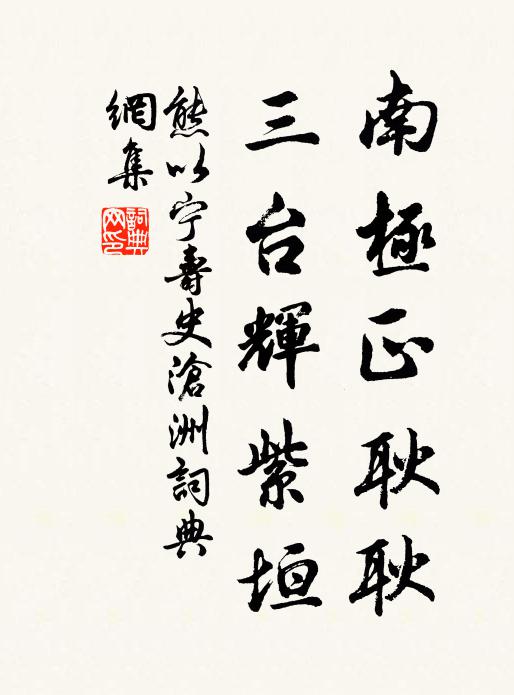 南極正耿耿
三台輝紫垣
熊以宁壽史滄洲詞典
網集
詞典
网印